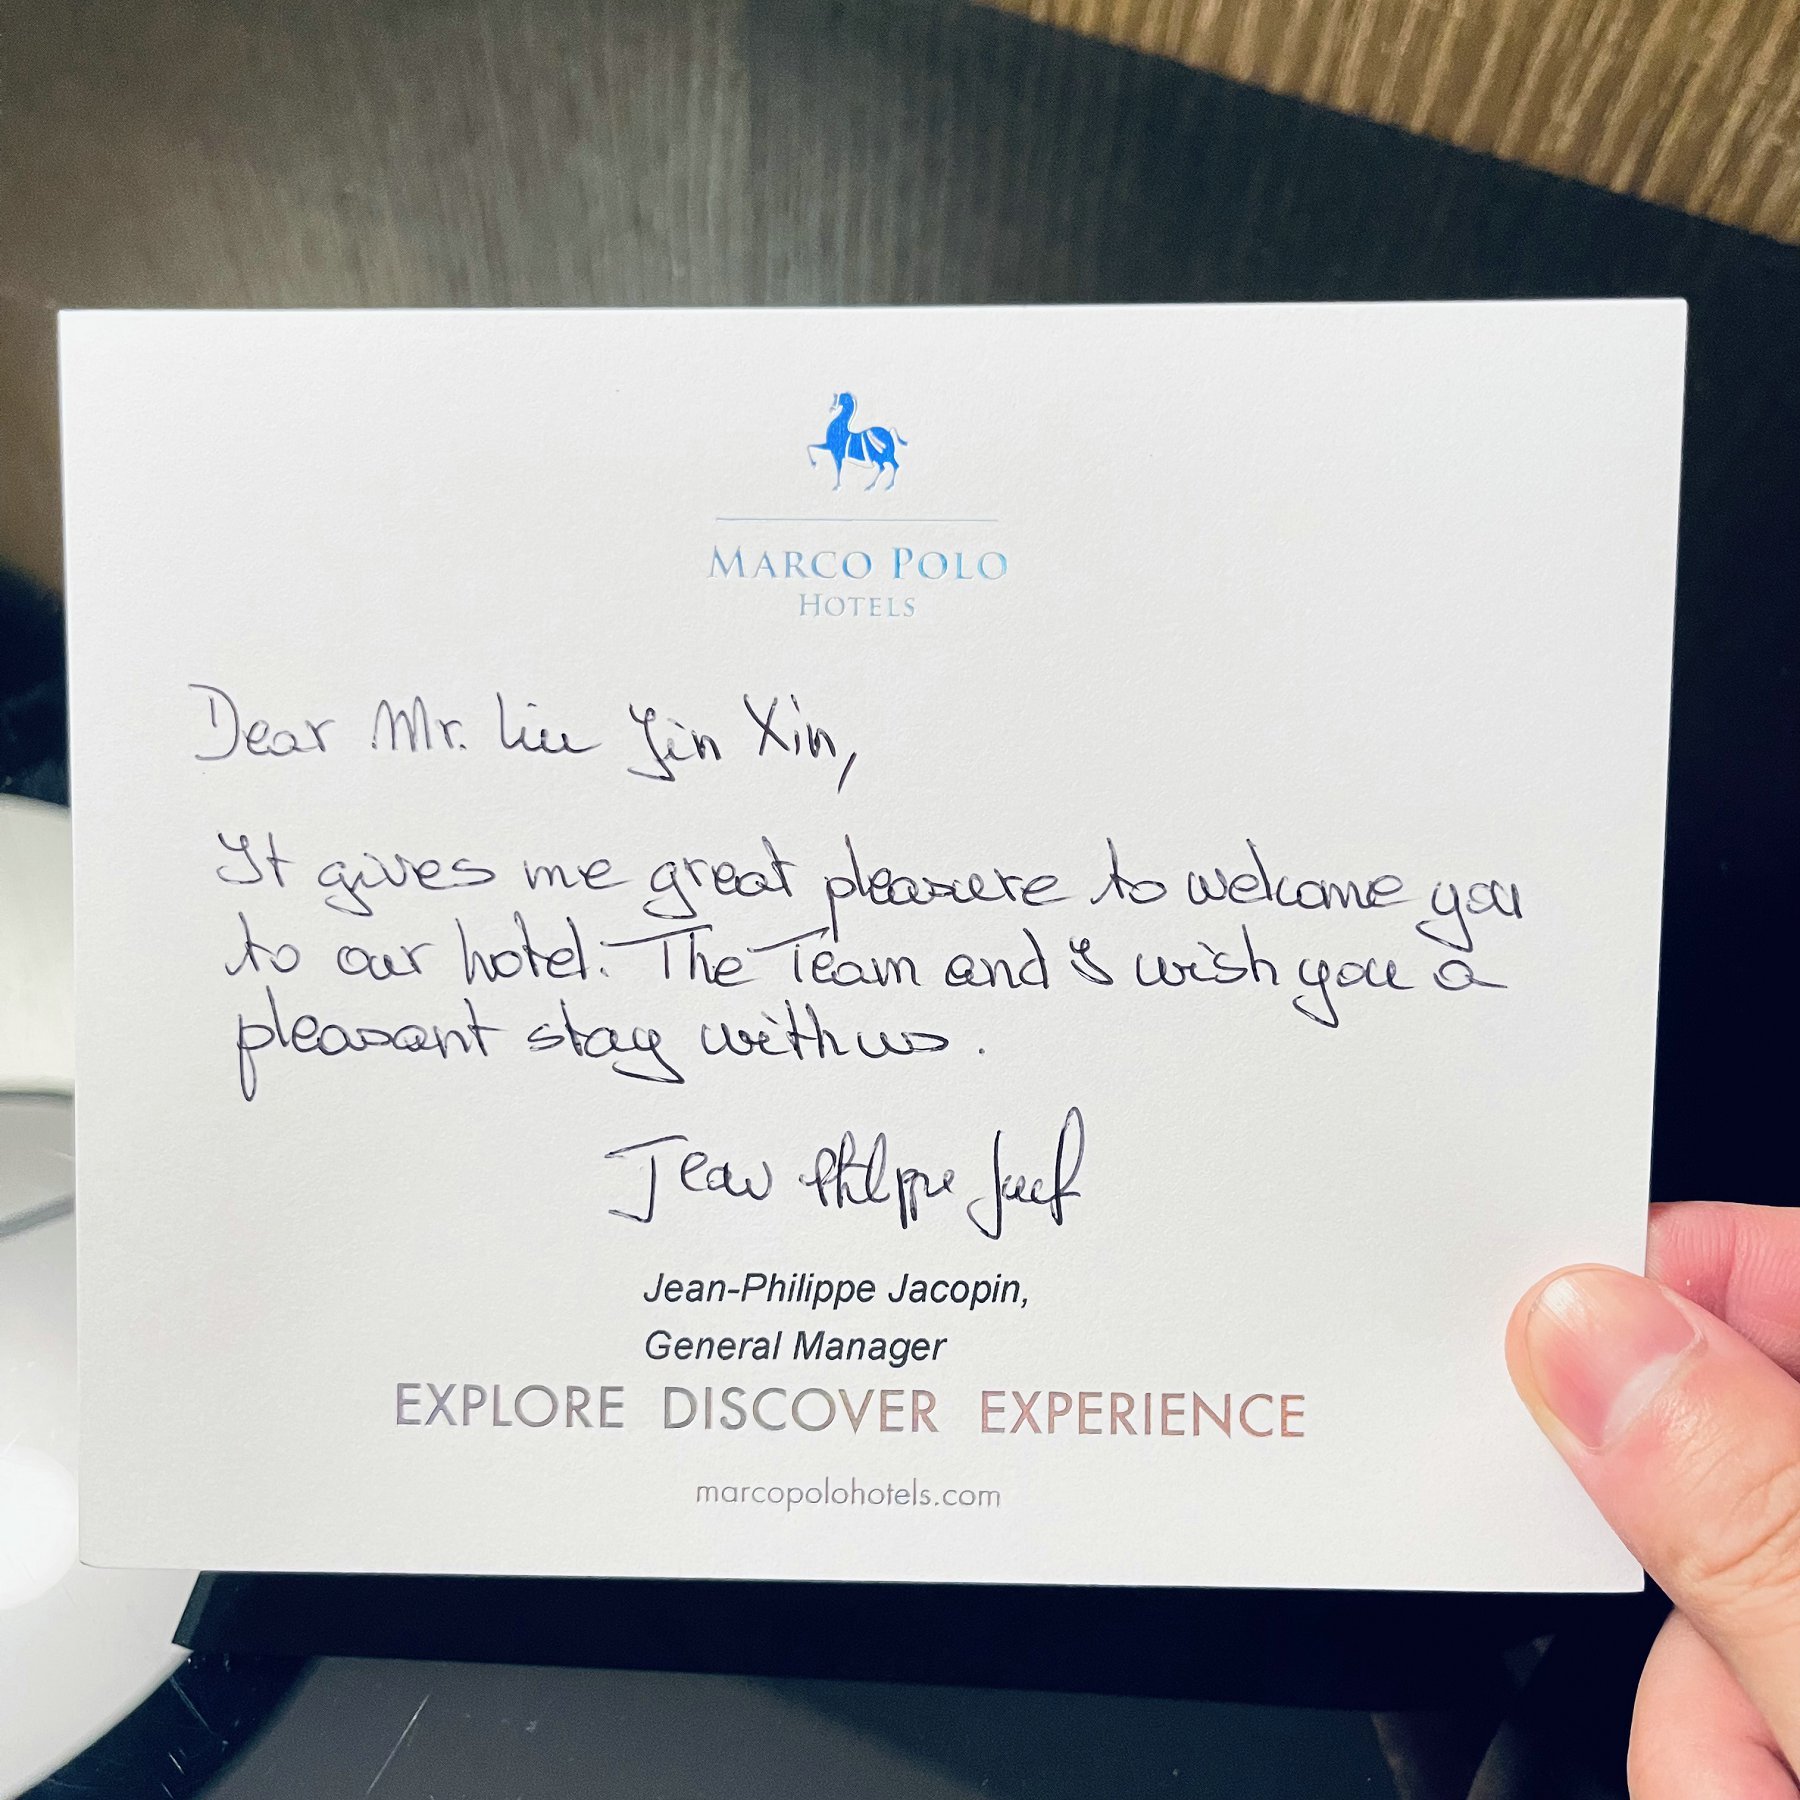 MARCO POLO
HOTELS
Dear Mr. Liu Jin Xin,
It gives me great pleasure to welcome you
to our hotel. The Team and I wish you a
pleasant stay with us.
Jean Philippe
Jean-Philippe Jacopin,
General Manager
EXPLORE DISCOVER EXPERIENCE
marcopolohotels.com